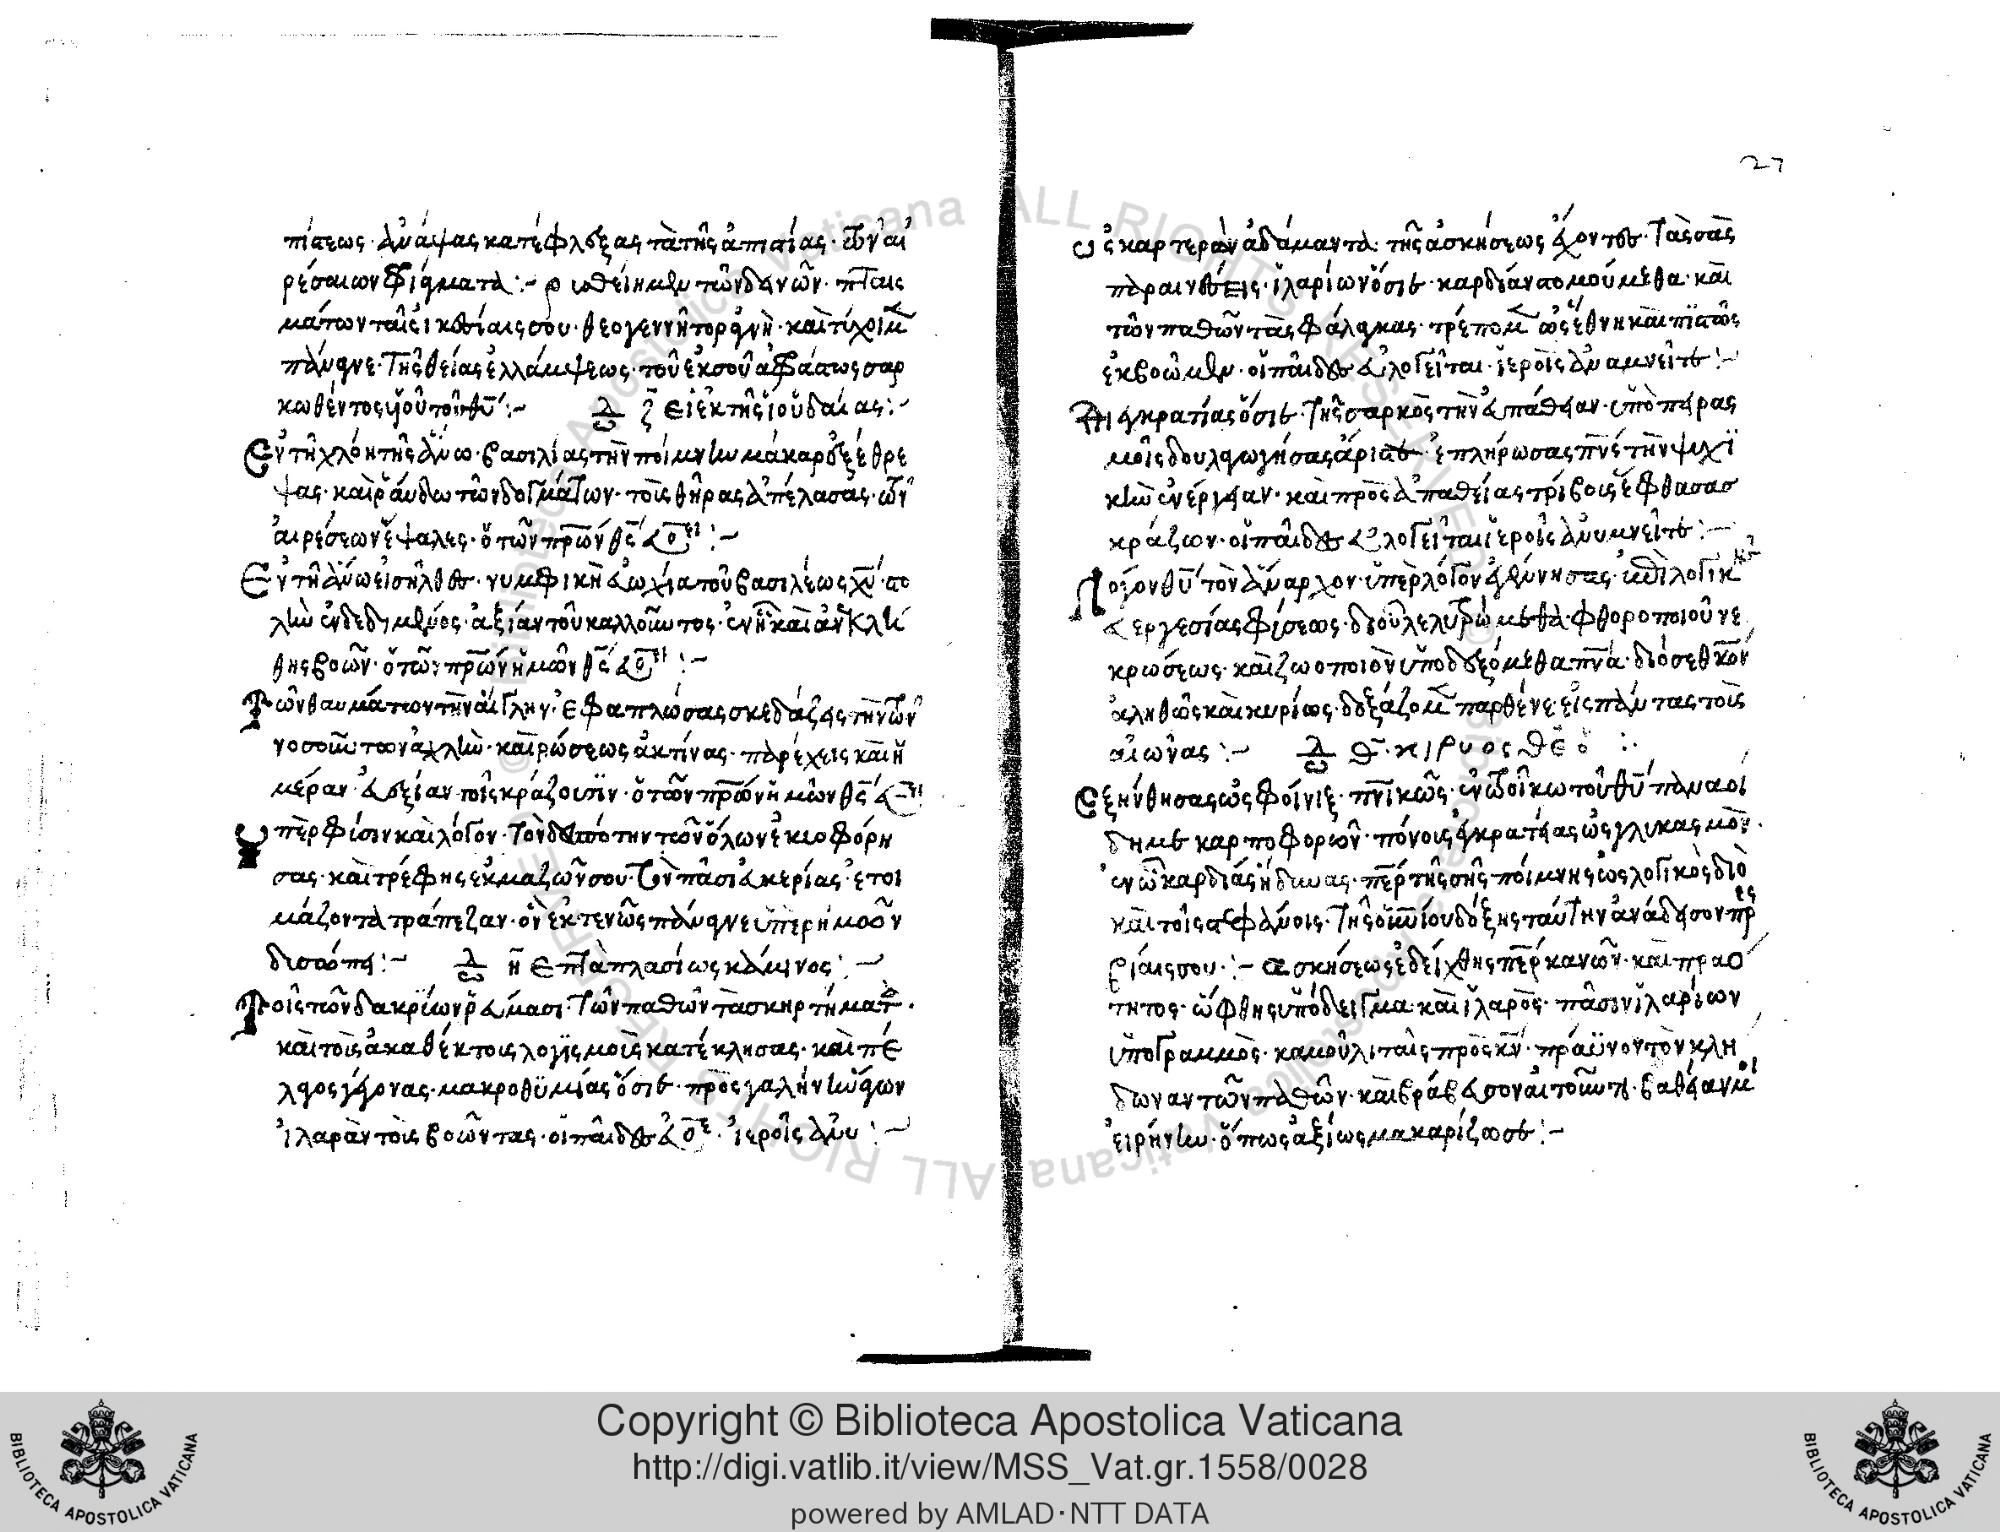 πίστεως ἀνάψας κατέφλεξας τὰ τῆς ἀπιστίας· τῶν αἱ
ρέσαιων
μάτων ταῖς ἱκεσίαις σου· θεογεννῆτορ ἁγνὴ· καὶ τύχοιμεν
πάναγνε· τῆς θείας ἐλλάμψεως· τοῦ ἐκ σοῦ ἀφράστως σαρ
κωθέντος υἱοῦ τοῦ θυ̅ :~ ᾠδ ζ̅ Οἱ ἐκ τῆς ἰουδαίας :~
Ἐν τῆ χλόη τῆς ἄνω· βασιλίας τὴν ποίμνην μάκαρ ἐξέθρε
ψας· καὶ ῥάυδω τῶν δογμάτων· τοῖς θῆρας ἀπέλασας· τῶν
αἱρέσεων ἔψαλες· ὁ τῶν πρω̅ν θς̅ :~
Ἐν τῆ ἄνω εἰσῆλθες· νυμφικὴ εὐωχία τοῦ βασιλέως χυ̅· στο
λὴν ἐνδεδυμένος· ἀξίαν τοῦ καλλοῦντος· ἐν ἧ καὶ ἀνεκλί
θης βοῶν· ὁ τῶν πρω̅ν ἡμῶν θς̅ :~
Τῶν θαυμάτων τὴν αἴγλην· ἐφαπλώσας σκεδάζεις τὴν τῶν
νοσούντων ἀχλὺν· καὶ ῥώσεως ἀκτίνας· παρέχεις καὶ ἡ
μέραν· εὐεξίαν τοῖς κράζουσϊν· ὁ τῶν πρω̅ν ἡμῶν θς̅
Ὑπὲρ φύσιν καὶ λόγον· τὸν δεσπότην τῶν ὅλων ἐκυοφόρη
σας· καὶ τρέφεις ἐκ μαζῶν σου· τὸν πᾶσι εὐκερίας· ἑτοι
μάζοντα τράπεζαν· ὃν ἐκτενῶς πάναγνε ὑπὲρ ἡμῶν
δισώπει :~ ᾠδ η̅ Ἑπταπλασίως κάμινος :~
Τοῖς τῶν δακρύων ῥεύμασι· τῶν παθῶν τὰ σκηρτήματα·
καὶ τοῖς ἀκαθέκτοις λογισμοῖς κατέκλησας· καὶ πέ
λαγος γέγονας· μακροθϋμίας ὅσιε· πρὸς γαλήνην ἄγων
ἱλαρὰν τοὺς βοῶντας· οἱ παῖδες· ἱεροῖς ἀνυ :~
27
Ὡς καρτερὰν ἀδάμαντα· τῆς ἀσκήσεως ἔχοντες· τὰς σὰς
παραινέσεις· ἱλαρίων ὅσιε· καρδίαν στομούμεθα· καὶ
τῶν παθῶν τὰς φάλαγκας· τρέπομεν ὡς ἔθνη καὶ πϊστῶς
ἐκβοῶμεν· οἱ παῖδες εὐλογεῖται· ἱεροῖς ἀναμνεῖτε :~
Δι ἐγκρατίας ὅσιε· τῆς σαρκὸς τὴν εὐπάθειαν· ὑποπτέρας
μοῖς δουλαγωγήσας ἄριστε· ἐπλήρωσας πν̅ε τὴν ψυχϊ
κὴν ἐνέργειαν· καὶ πρὸς ἀπαθείας τρίβοις ἔφθασας
κράζων· οἱ παῖδες εὐλογεῖται ἱεροῖς ἀνυμνεῖτε :~
Λόγον θυ̅ τὸν ἄναρχον· ὑπὲρ λόγον ἐγέννησας·
εὐεργεσίας φύσεως· δι οὗ λελυτρώμεθα· φθοροποιοῦ νε
κρώσεως· καὶ ζωοποιὸν ὑποδεξόμεθα πν̅α· διό σε θκ̅ον
ἀληθῶς καὶ κυρίως· δοξάζομεν παρθένε εἰς πάντας τοὺς
αἰῶνας :~ ᾠδ θ̅· κιρυος θε ο :·
Ἐξήνθησας ὡς φοίνιξ· πν̅ικῶς· ἐν τῶ οἴκω τοῦ θυ̅ πάνσοφε
δημε καρποφορῶν· πόνοις ἐγκρατείας ὡς γλυκασμὸν·
ἐν ὧ καρδίας ἥδυνας· πε̅ρ τῆς σῆς ποίμνης ὡς λογικὸς διὸ
καὶ τοῖς στεφάνοις· τῆς οὐ̅νίου δόξης ταύτην ἀνάδησον πρεσ
βίαις σου :~ Ἀσκήσεως ἐδείχθης πε̅ρ κανὼν· καὶ πραό
τητος· ὤφθης ὑπόδειγμα· καὶ ἱλαρὸς· πᾶσιν ἱλαρίων
ὑπογραμμὸς· καμοῦ λιταῖς πρὸς κν̅· πράϋνον τὸν κλη
δωναν τῶν παθῶν· καὶ βράβευσον αἰτοῦντι· βαθεῖαν μοι
εἰρήνην· ὅπως ἀξίως μακαρίζω σε :~
Copyright © Biblioteca Apostolica Vaticana
http://digi.vatlib.it/view/MSS_Vat.gr.1558/0028
powered by AMLAD·NTT DATA
BIBLIOTECA APOSTOLICA VATICANA
BIBLIOTECA APOSTOLICA VATICANA